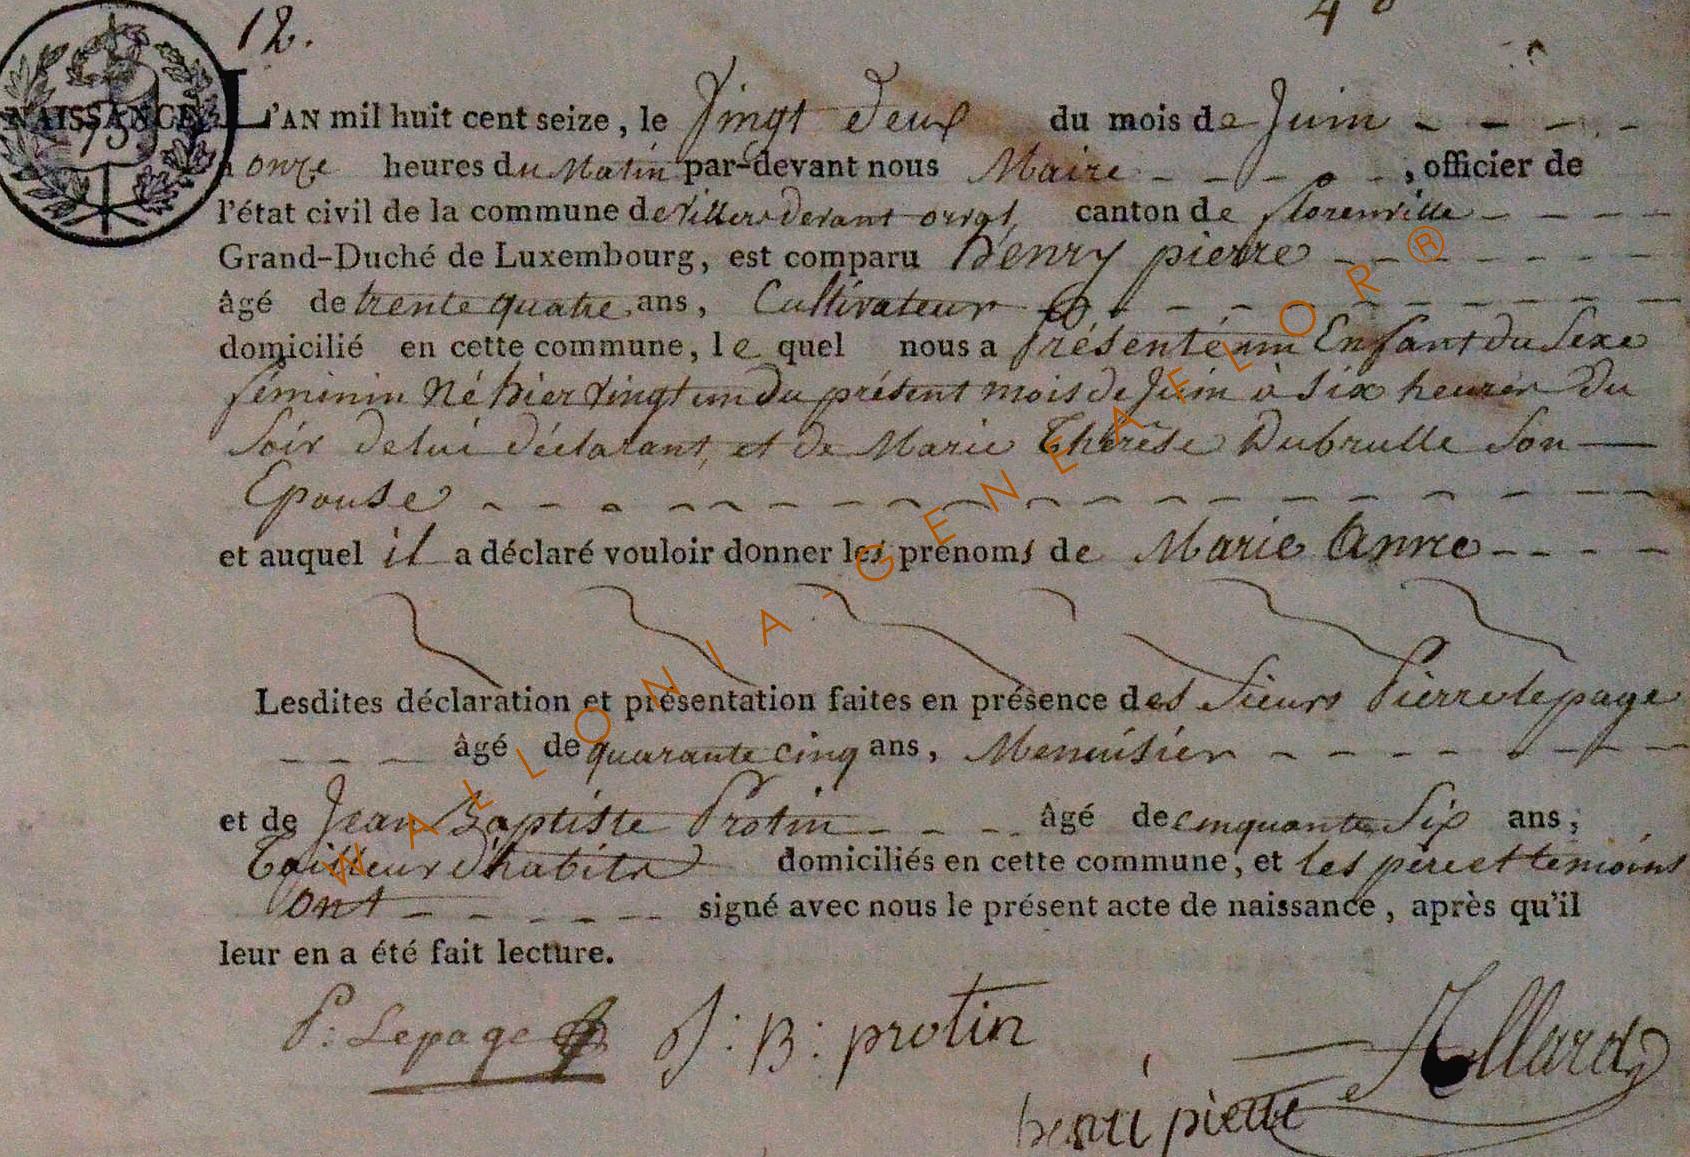 12.
4
NAISSANCE
75
L'AN mil huit cent seize, le Vingt Deux du mois de Juin
à onze heures du Matin par-devant nous Maire, officier de
l'état civil de la commune de Villers devant orval, canton de florenville
Grand-Duché de Luxembourg, est comparu henry pierre
âgé de trente quatre ans, Cultivateur
domicilié en cette commune, le quel nous a présenté un Enfant du Sexe
féminin Né hier vingt un du présent mois de Juin à six heures du
Soir de lui déclarant, et de Marie Thérèse Dubrulle Son
Epouse
et auquel il a déclaré vouloir donner les prénoms de Marie Anne
Lesdites déclaration et présentation faites en présence des Sieurs Pierre lepage
âgé de quarante cinq ans, Menuisier
et de Jean Baptiste Protin âgé de cinquante Six ans,
Tailleur d'habits domiciliés en cette commune, et les père et temoins
ont signé avec nous le présent acte de naissance, après qu'il
leur en a été fait lecture.
P: Lepage J: B: protin
henri pierre
WALLONIA-GENEAFLOR®